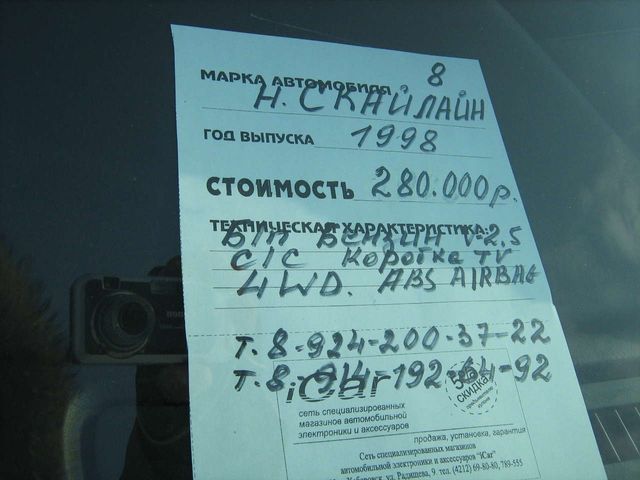 8
МАРКА АВТОМОБИЛЯ Н. СКАЙЛАЙН
ГОД ВЫПУСКА 1998
СТОИМОСТЬ 280.000р.
ТЕХНИЧЕСКАЯ ХАРАКТЕРИСТИКА:
Б/П БЕНЗИН V-2.5
С/С КОРОБКА TV
4WD. ABS AIRBAG
т. 8-924-200-37-22
т. 8-914-192-64-92
iCar
5% СКИДКА
сеть специализированных
магазинов автомобильной
электроники и аксессуаров
продажа, установка, гарантия
Сеть специализированных магазинов
автомобильной электроники и аксессуаров "iCar"
Хабаровск, ул. Радищева, 9. тел. (4212) 69-80-80, 789-555